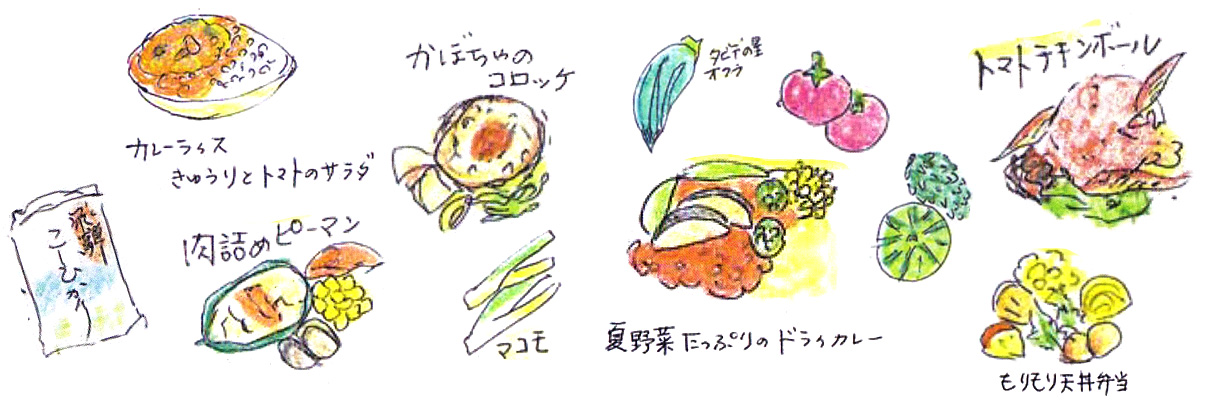 カレーライス
きゅうりとトマトのサラダ
飛騨
こしひかり
肉詰めピーマン
かぼちゃの
コロッケ
マコモ
オクラ
夏野菜たっぷりのドライカレー
トマトチキンボール
もりもり天丼弁当